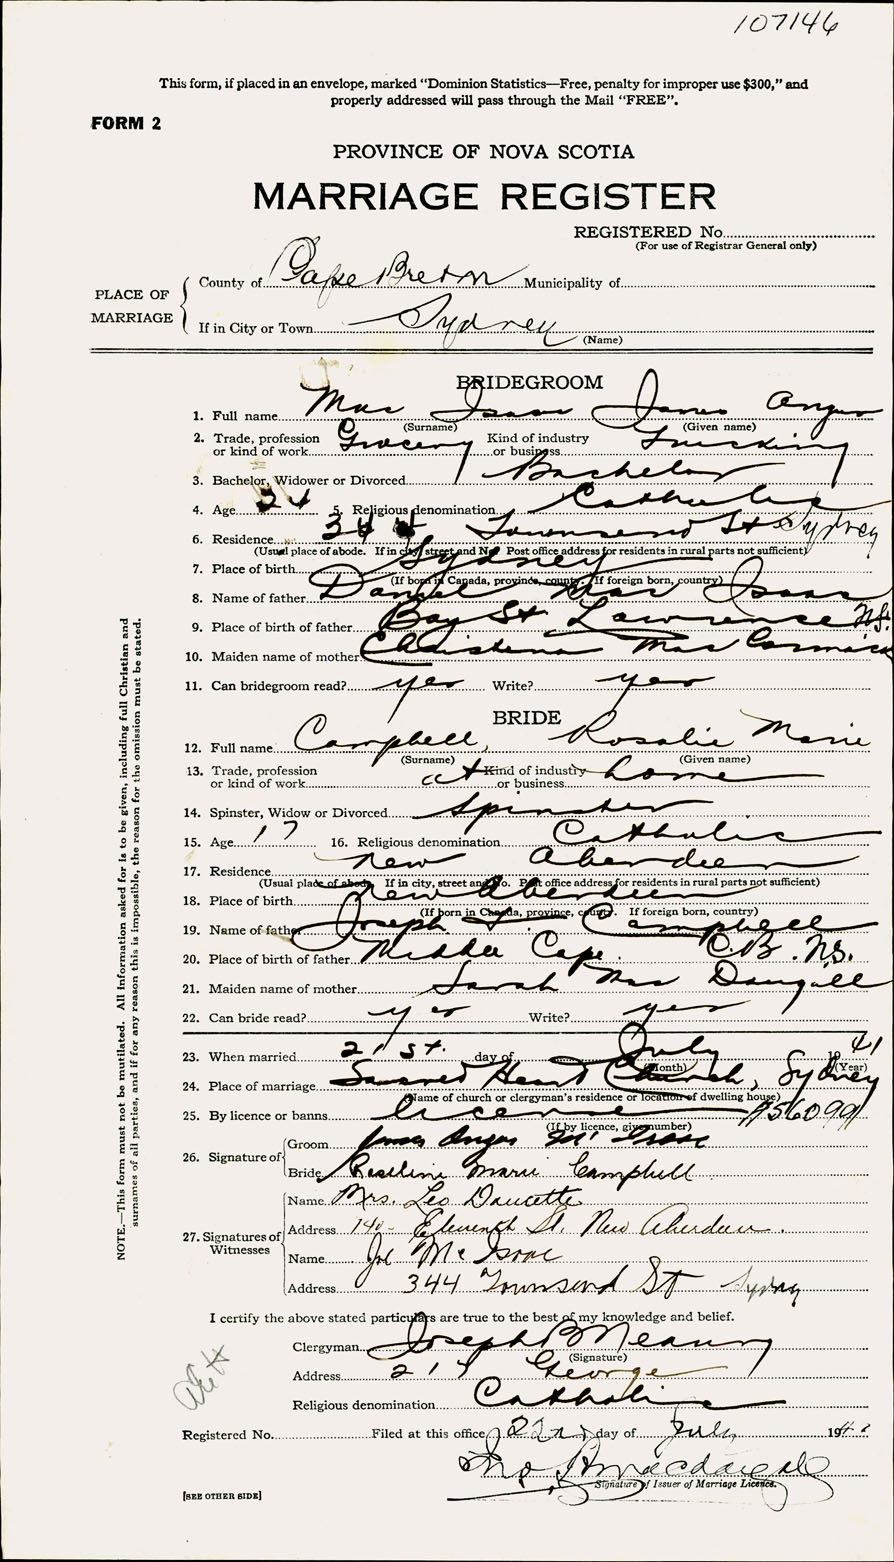 107146
This form, if placed in an envelope, marked "Dominion Statistics—Free, penalty for improper use $300," and
properly addressed will pass through the Mail "FREE".
FORM 2
PROVINCE OF NOVA SCOTIA
MARRIAGE REGISTER
REGISTERED No.
(For use of Registrar General only)
PLACE OF MARRIAGE
County of Cape Breton Municipality of
If in City or Town Sydney
(Name)
BRIDEGROOM
1. Full name Mac Isaac James Angus
(Surname) (Given name)
2. Trade, profession or kind of work Grocery Kind of industry or business Trucking
3. Bachelor, Widower or Divorced Bachelor
4. Age 24 5. Religious denomination Catholic
6. Residence 344 Townsend St Sydney
(Usual place of abode. If in city, street and No. Post office address for residents in rural parts not sufficient)
7. Place of birth Sydney
(If born in Canada, province, county. If foreign born, country)
8. Name of father Daniel Mac Isaac
9. Place of birth of father Bay St Lawrence N.S.
10. Maiden name of mother Christena Mac Cormick
11. Can bridegroom read? yes Write? yes
BRIDE
12. Full name Campbell, Rosalie Marie
(Surname) (Given name)
13. Trade, profession or kind of work at Kind of industry or business home
14. Spinster, Widow or Divorced Spinster
15. Age 17 16. Religious denomination Catholic
17. Residence New Aberdeen
(Usual place of abode. If in city, street and No. Post office address for residents in rural parts not sufficient)
18. Place of birth New Aberdeen
(If born in Canada, province, county. If foreign born, country)
19. Name of father Joseph Campbell
20. Place of birth of father Middle Cape C.B. N.S.
21. Maiden name of mother Sarah Mac Dougall
22. Can bride read? yes Write? yes
23. When married 21 st. day of July 1941
(Month) (Year)
24. Place of marriage Sacred Heart Church, Sydney
(Name of church or clergyman's residence or location of dwelling house)
25. By licence or banns licence 56099
(If by licence, give number)
26. Signature of
Groom James Angus Mc Isaac
Bride Marie Campbell
27. Signatures of Witnesses
Name Mrs. Leo Doucette
Address 140 - Eleventh St. New Aberdeen.
Name Joe Mc Isaac
Address 344 Townsend St Sydney
I certify the above stated particulars are true to the best of my knowledge and belief.
Clergyman Joseph B Neary
(Signature)
Address George
Religious denomination Catholic
Registered No. Filed at this office 22nd day of July 194
Signature of Issuer of Marriage Licence.
[SEE OTHER SIDE]
NOTE.—This form must not be mutilated. All information asked for is to be given, including full Christian and
surnames of all parties, and if for any reason this is impossible, the reason for the omission must be stated.